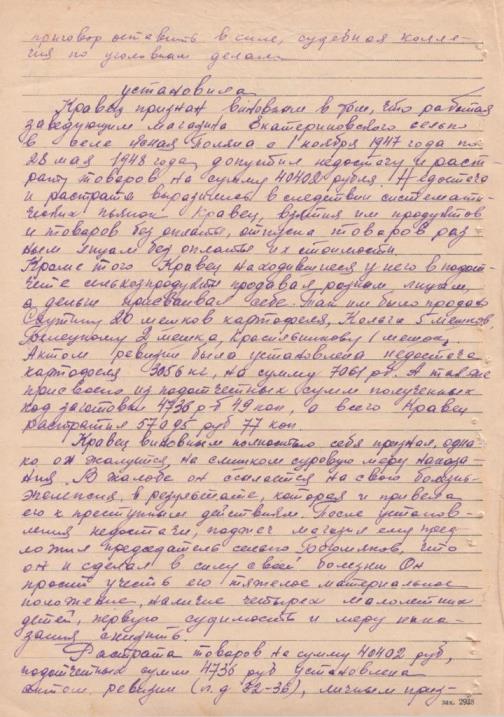 приговор оставить в силе, судебная колле-
гия по уголовным делам
установила
Кравец признан виновным в том, что работая
заведующим магазина Екатериновского сельпо
в селе Ясная Поляна с 1 ноября 1947 года по
28 мая 1948 года, допустил недостачу и раст-
рату товаров на сумму 40402 рубля. Недостача
и растрата выразились в следствии системати-
ческих пьянок Кравец, взятия им продуктов
и товаров без оплаты, отпуска товаров раз
ным лицам без оплаты их стоимости.
Кроме того Кравец находившиеся у него в подот-
чете сельхозпродукты продавал разным лицам,
а деньги присваивал себе. Так им было продано
20 мешков картофеля, 5 мешков
2 мешка, Красильникову 1 мешок,
Актом ревизии была установлена недостача
картофеля 3056 кг, на сумму 7061 рб. А также
присвоено из подотчетных сумм полученных
под заготовки 4736 рб 49 коп, а всего Кравец
растратил 57095 руб 77 коп.
Кравец виновным полностью себя признал, одна
ко он жалуется, на слишком суровую меру наказа
ния. В жалобе он ссылается на свою болезнь-
эпилепсия, в результате, которая и привела
его к преступным действиям. После установ-
ления недостачи, поджег магазин ему пред
ложил председатель сельпо Богомяков, что
он и сделал в силу своей болезни Он
просит учесть его тяжелое материальное
положение, наличие четырех малолетних
детей, первую судимость и меру нака-
зания снизить.
Растрата товаров на сумму 40402 руб,
подотчетных сумм 4736 руб установлена
актом ревизии (л.д 32-36), личным приз-
зак. 2928